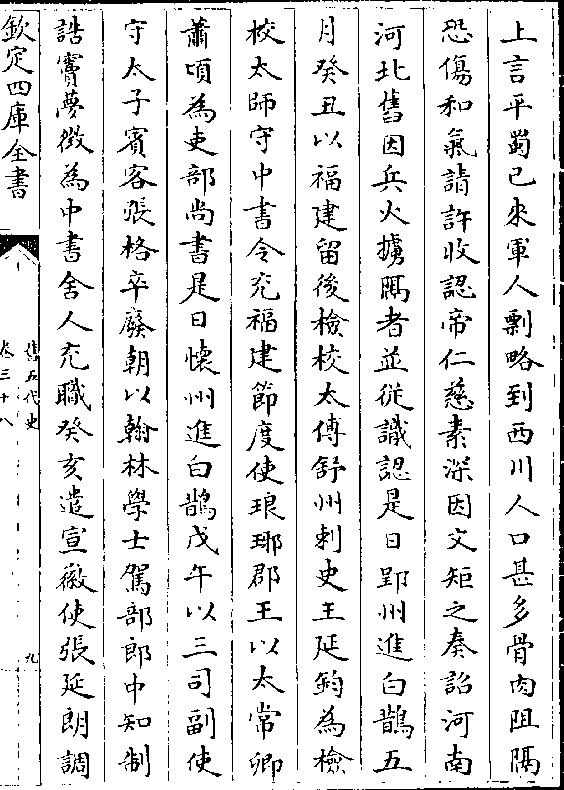 上言平蜀已來軍人剽略到西川人口甚多骨肉阻隔
恐傷和氣請許收認帝仁慈素深因文矩之奏詔河南
河北舊因兵火擄隔者並從識認是日郢州進白鵲五
月癸丑以福建留後檢校太傅舒州刺史王延鈞為檢
校太師守中書令充福建節度使琅琊郡王以太常卿
蕭頃為吏部尚書是日懷州進白鵲戊午以三司副使
守太子賓客張格卒廢朝以翰林學士駕部郎中知制
誥竇夢徴為中書舍人充職癸亥遣宣徽使張延朗調
欽定四庫全書
舊五代史
卷三十八
九